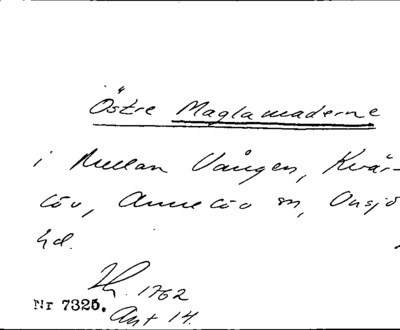 Östre Maglamaderne
i Mellan Vången, Kvär-
löv, Annelöv sn, Onsjö
hd.
1762
Nr 7325. Akt 14.